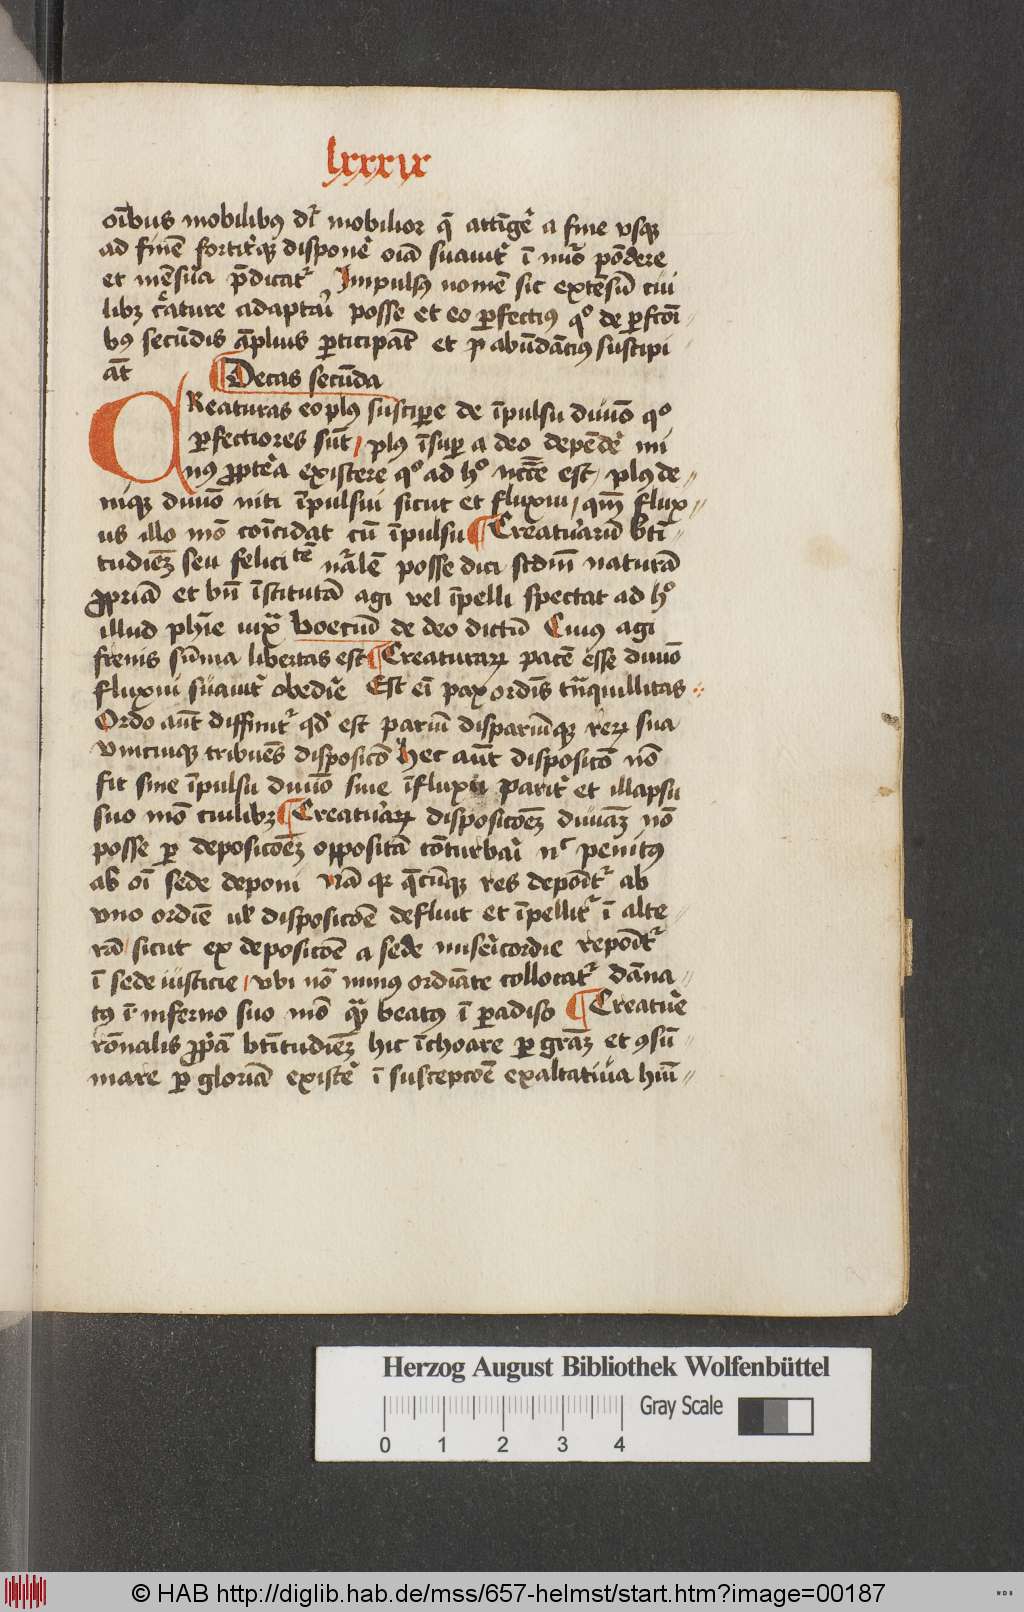 lxxxix
oībus mobilibꝰ dr̄ mobilior q̄ attīgēs a fine vsqꝫ
ad finē fortit᷑qꝫ disponēs oīa suauit᷑ ī nūo pōdere
et mēsura p̄dicat᷑ Impulsꝰ nomē sic extēsū cui
libꝫ c᷑ature adaptari posse et eo ꝑfectiꝰ qͦ de ꝑfcōi
bꝰ secūdis āplius ꝑticipāt et p abūdāciꝰ suscipi
āt Decas secūda
CReaturas eo plꝰ suscipe de īpulsu diuīo qͦ
ꝑfectiores sūt / plꝰ īsuꝑ a deo depēde᷑ mi
nꝰ ꝓpte᷑a existere qͦ ad hͦ nccē est / plꝰ de
niqꝫ diuīo niti īpulsui sicut et fluxui / qm̄ flux
us illo mō coīcidat cū īpulsu Creatura᷑ū bti
tudiēꝫ seu felicitē nr̄alē posse dici scdm̄ naturā
ꝓpriā et bn̄ īstitutā agi vel īpelli spectat ad hͦ
illud phīe iuxͣ boeciū de deo dictū Cuiꝰ agi
frenis sūma libertas est Creaturaꝝ pacē esse diuīo
fluxui suauit᷑ obedi᷑e Est eī pax ordīs trāquillitas
Ordo aūt diffinit᷑ qd᷑ est pariū dispariūqꝫ reꝝ sua
vnicuiqꝫ tribuēs disposicō hec aūt disposicō nō
fit sine īpulsu diuīo siue īfluxu Parit᷑ et illapsu
suo mō cuilibꝫ Creaturaꝝ disposicōeꝫ diuiaꝫ nō
posse ꝑ deposicōeꝫ oppositā cōturbari nͨ penitꝰ
ab oī sede deponi Nā qꝛ q̄cūqꝫ res depōit᷑ ab
vno ordiē ul᷑ disposicōe defluit et īpellit᷑ ī alte
rā sicut ex deposicōe a sede misericordie repōit᷑
ī sede iusticie / vbi nō minꝰ ordiāte collocat᷑ dāna
tꝰ ī inferno suo mō qͣꝫ beatꝰ ī ꝑadiso Creature
rōnalis ꝓpͥā btītudiēꝫ hic īchoare ꝑ graꝫ et ꝯsū
mare ꝑ gloriā existe᷑ ī suscepcōe exaltatiua hūi
Herzog August Bibliothek Wolfenbüttel
Gray Scale
0 1 2 3 4
© HAB http://diglib.hab.de/mss/657-helmst/start.htm?image=00187